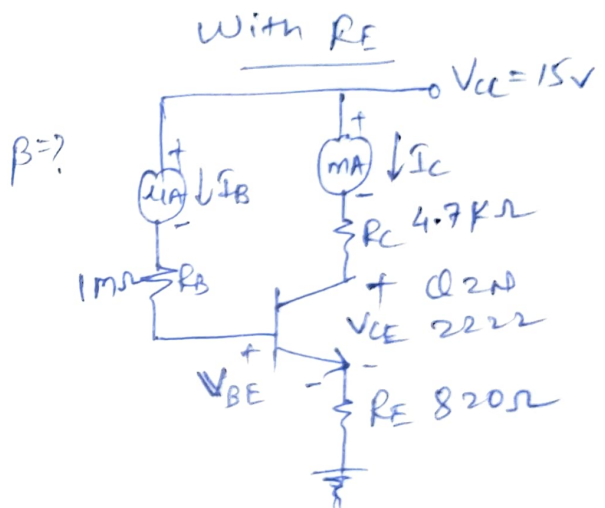 With RE
VCC = 15V
β=?
+
+
µA ↓IB
mA ↓IC
-
-
RC 4.7KΩ
1MΩ RB
+ Q2N
VCE 2222
+
-
VBE
-
RE 820Ω